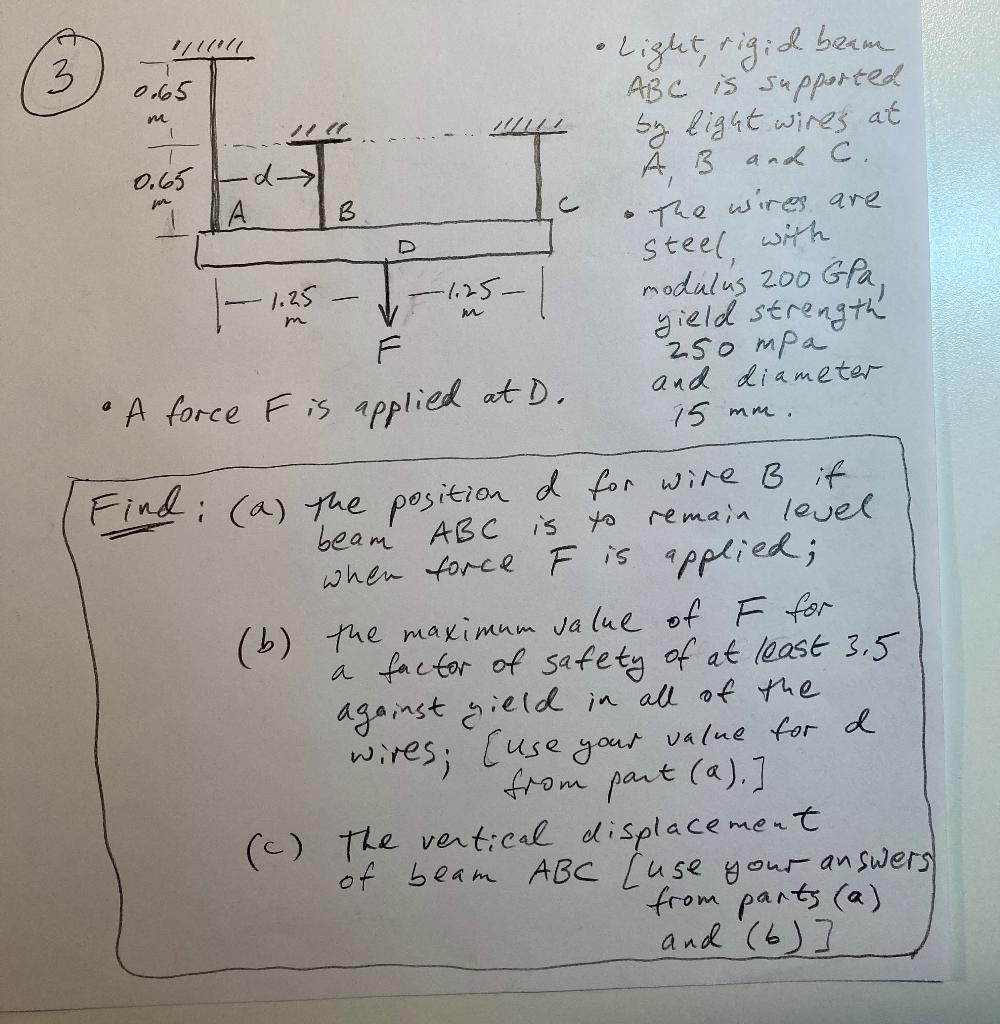 3
0.65
m
0.65
m
d
A
B
C
D
1.25
m
1.25
m
F
• Light, rigid beam
ABC is supported
by light wires at
A, B and C.
• The wires are
steel, with
modulus 200 GPa,
yield strength
250 mPa
and diameter
15 mm.
• A force F is applied at D.
Find: (a) the position d for wire B if
beam ABC is to remain level
when force F is applied;
(b) the maximum value of F for
a factor of safety of at least 3.5
against yield in all of the
wires; [use your value for d
from part (a).]
(c) The vertical displacement
of beam ABC [use your answers
from parts (a)
and (b)]